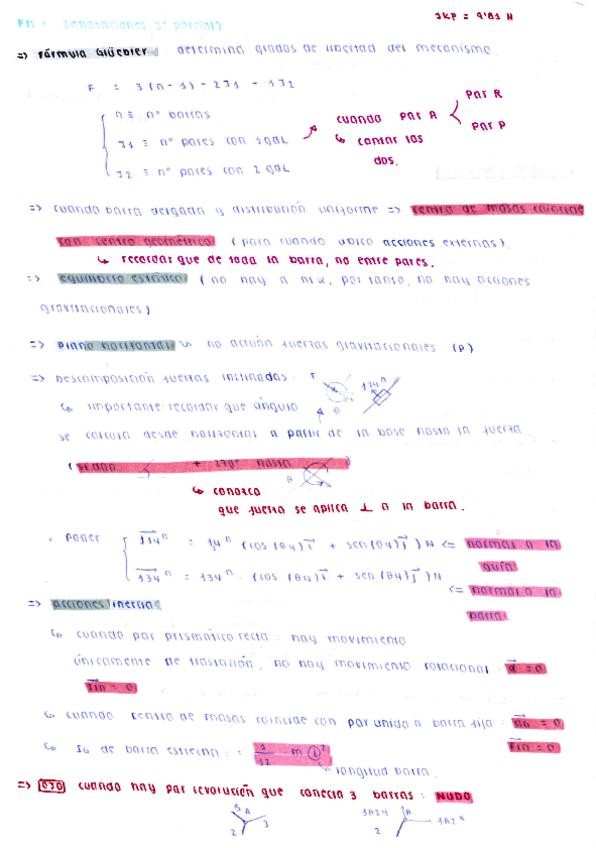 FM : (anotaciones 2º parcial)
1kp = 9'81 N
=> Fórmula Grüebler : determina grados de libertad del mecanismo.
F = 3(n-1) - 2J1 - 1J2
n ≡ nº barras
J1 ≡ nº pares con 1 gdL
J2 ≡ nº pares con 2 gdL
cuando par A
Par R
Par P
↳ contar los
dos.
=> cuando barra delgada y distribución uniforme => centro de masas coincide
con centro geométrico (para cuando ubico acciones externas).
↳ recordar que de toda la barra, no entre pares.
=> equilibrio estático (no hay a ni α, por tanto, no hay acciones
gravitacionales)
=> plano horizontal no actúan fuerzas gravitacionales (P)
=> Descomposición fuerzas inclinadas :
↳ importante: recordar que ángulo
se calcula desde horizontal a partir de la base hasta la fuerza.
+ 270º hasta
θ
↳ conozco
que fuerza se aplica ⊥ a la barra.
· Poner
134ⁿ = 134ⁿ · (cos(θ4) i + sen(θ4) j) N <= normal a la
guía
<= normal a la
barra
=> acciones inercia
↳ cuando par prismático recta : hay movimiento
únicamente de traslación, no hay movimiento rotacional : α = 0
Tin = 0
↳ cuando centro de masas coincide con par unido a barra fija : aG = 0
Fin = 0
↳ IG de barra estrecha : = 1/12 · m · l²
↳ longitud barra.
=> OJO cuando hay par revolución que conecta 3 barras : NUDO
A
2
3
A
2